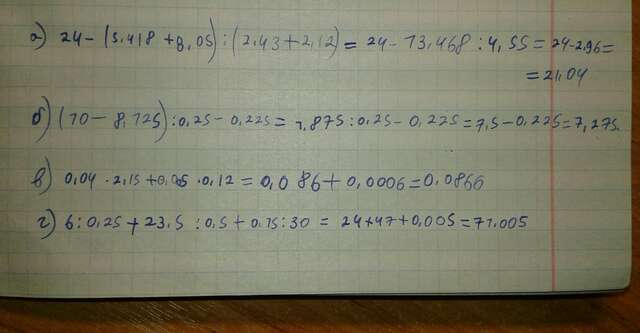 а) 24-(5,418+8,05):(2,43+2,12)=24-13,468:4,55=24-2,96=
=21,04
б) (10-8,125):0,25-0,225=1,875:0,25-0,225=7,5-0,225=7,275.
в) 0,04·2,15+0,05·0,12=0,086+0,0006=0,0866
г) 6:0,25+23,5:0,5+0,15:30=24+47+0,005=71,005